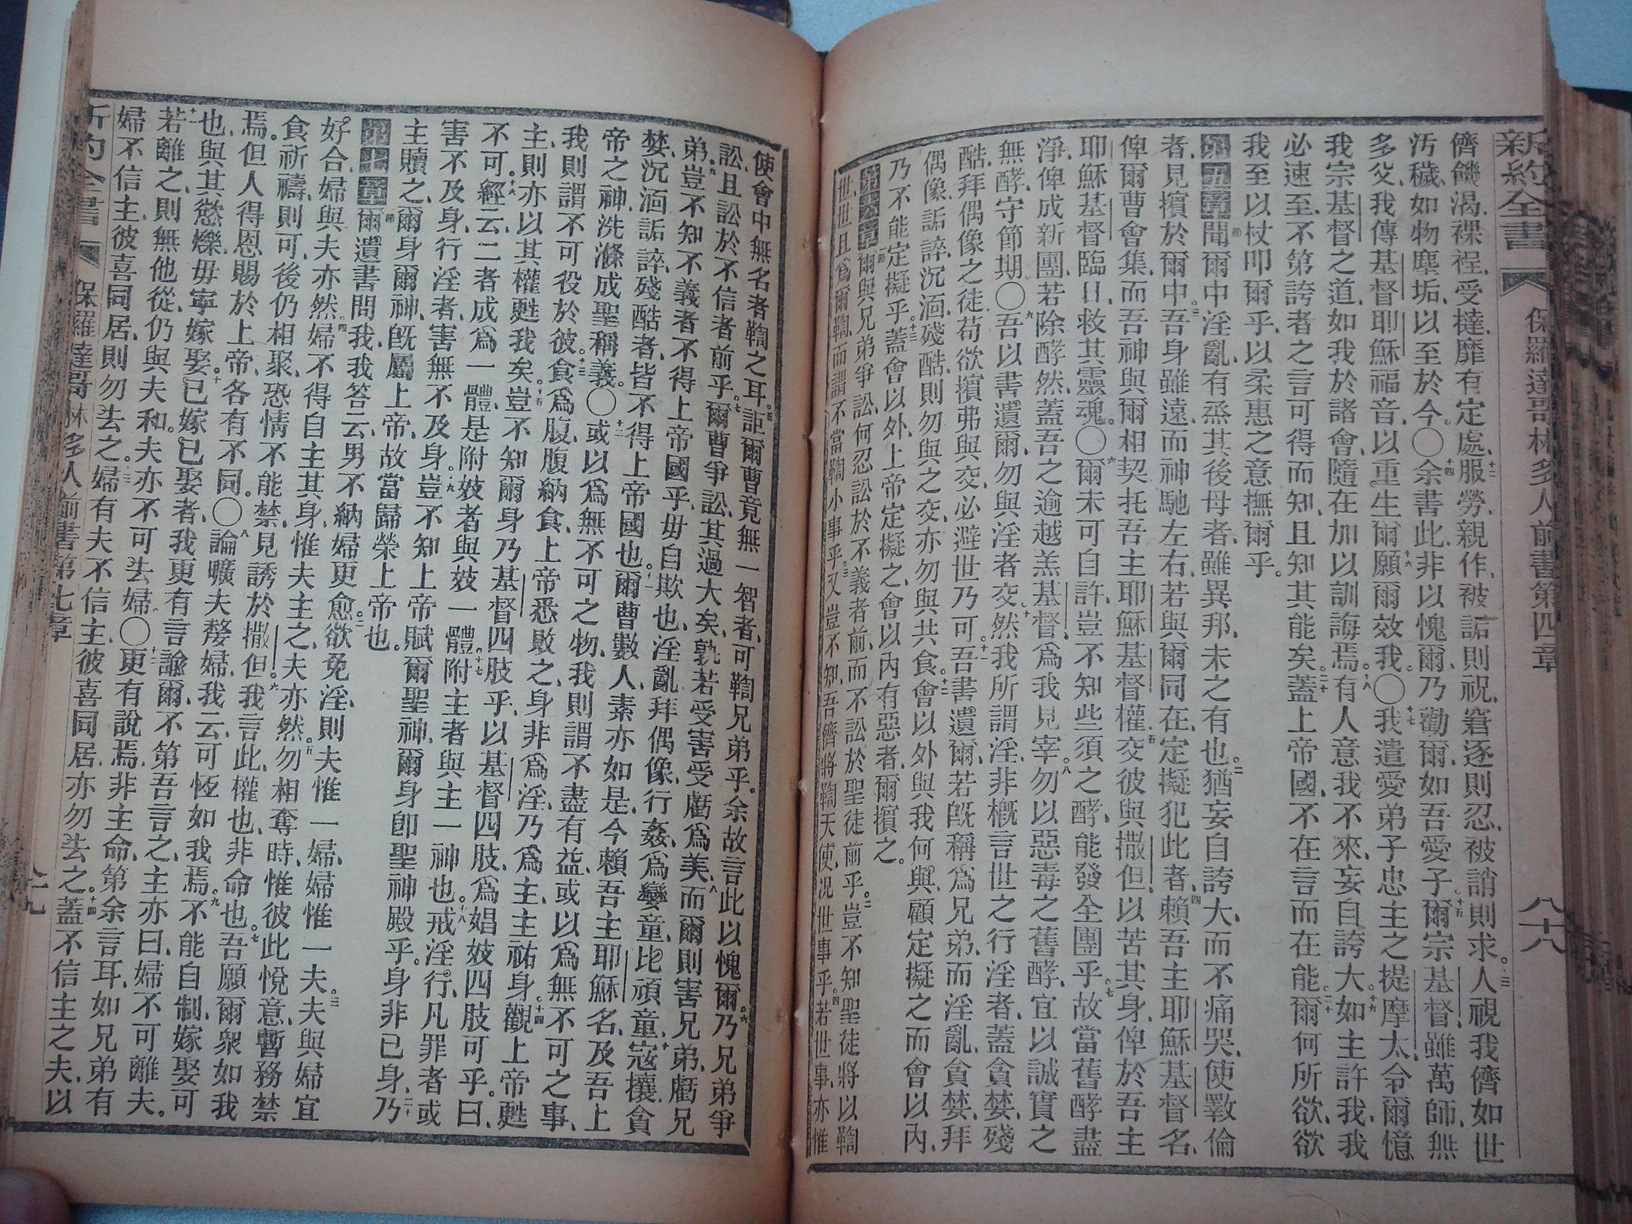 新約全書 保羅達哥林多人前書第四章 八十八
儕饑渴裸裎受撻靡有定處服勞親作被詬則祝窘逐則忍被誚則求人視我儕如世
汚穢如物塵垢以至於今〇余書此非以愧爾乃勸爾如吾愛子爾宗基督雖萬師無
多父我傳基督耶穌福音以重生爾願爾效我〇我遣愛弟子忠主之提摩太令爾憶
我宗基督之道如我於諸會隨在加以訓誨焉有人意我不來妄自誇大如主許我我
必速至不第誇者之言可得而知且知其能矣蓋上帝國不在言而在能爾何所欲欲
我至以杖叩爾乎以柔惠之意撫爾乎
第五章聞爾中淫亂有烝其後母者雖異邦未之有也猶妄自誇大而不痛哭使斁倫
者見擯於爾中吾身雖遠而神馳左右若與爾同在定擬犯此者賴吾主耶穌基督名
俾爾曹會集而吾神與爾相契托吾主耶穌基督權交彼與撒但以苦其身俾於吾主
耶穌基督臨日救其靈魂〇爾未可自許豈不知些須之酵能發全團乎故當舊酵盡
淨俾成新團若除酵然蓋吾之逾越羔基督為我見宰勿以惡毒之舊酵宜以誠實之
無酵守節期〇吾以書遺爾勿與淫者交然我所謂淫非概言世之行淫者蓋貪婪殘
酷拜偶像之徒苟欲擯弗與交必避世乃可吾書遺爾若既稱為兄弟而淫亂貪婪拜
偶像詬誶沉湎殘酷則勿與之交亦勿與共食會以外與我何與顧定擬之而會以內
乃不能定擬乎蓋會以外上帝定擬之會以內有惡者爾擯之
第六章爾與兄弟爭訟何忍訟於不義者前而不訟於聖徒前乎豈不知聖徒將以鞫
世世且為爾鞫而謂不當鞫小事乎又豈不知吾儕將鞫天使况世事乎若世事亦惟
使會中無名者鞫之耳詎爾曹竟無一智者可鞫兄弟乎余故言此以愧爾乃兄弟爭
訟且訟於不信者前乎爾曹爭訟其過大矣孰若受害受虧為美而爾則害兄弟虧兄
弟豈不知不義者不得上帝國乎毋自欺也淫亂拜偶像行姦為孌童比頑童寇攘貪
婪沉湎詬誶殘酷者皆不得上帝國也爾曹數人素亦如是今賴吾主耶穌名及吾上
帝之神洗滌成聖稱義〇或以為無不可之物我則謂不盡有益或以為無不可之事
我則謂不可役於彼食為腹腹納食上帝悉敗之身非為淫乃為主主祐身觀上帝甦
主則亦以其權甦我矣豈不知爾身乃基督四肢乎以基督四肢為娼妓四肢可乎曰
不可經云二者成為一體是附妓者與妓一體附主者與主一神也戒淫行凡罪者或
害不及身行淫者害無不及身豈不知上帝賦爾聖神爾身即聖神殿乎身非已身乃
主贖之爾身爾神既屬上帝故當歸榮上帝也
第七章爾遺書問我我答云男不納婦更愈欲免淫則夫惟一婦婦惟一夫夫與婦宜
好合婦與夫亦然婦不得自主其身惟夫主之夫亦然勿相奪時惟彼此悅意暫務禁
食祈禱則可後仍相聚恐情不能禁見誘於撒但我言此權也非命也吾願爾衆如我
焉但人得恩賜於上帝各有不同〇論曠夫嫠婦我云可恆如我焉不能自制嫁娶可
也與其慾爍毋寧嫁娶已嫁已娶者我更有言諭爾不第吾言之主亦曰婦不可離夫
若離之則無他從仍與夫和夫亦不可去婦〇更有說焉非主命第余言耳如兄弟有
婦不信主彼喜同居則勿去之婦有夫不信主彼喜同居亦勿去之蓋不信主之夫以
新約全書 保羅達哥林多人前書第七章 八十九